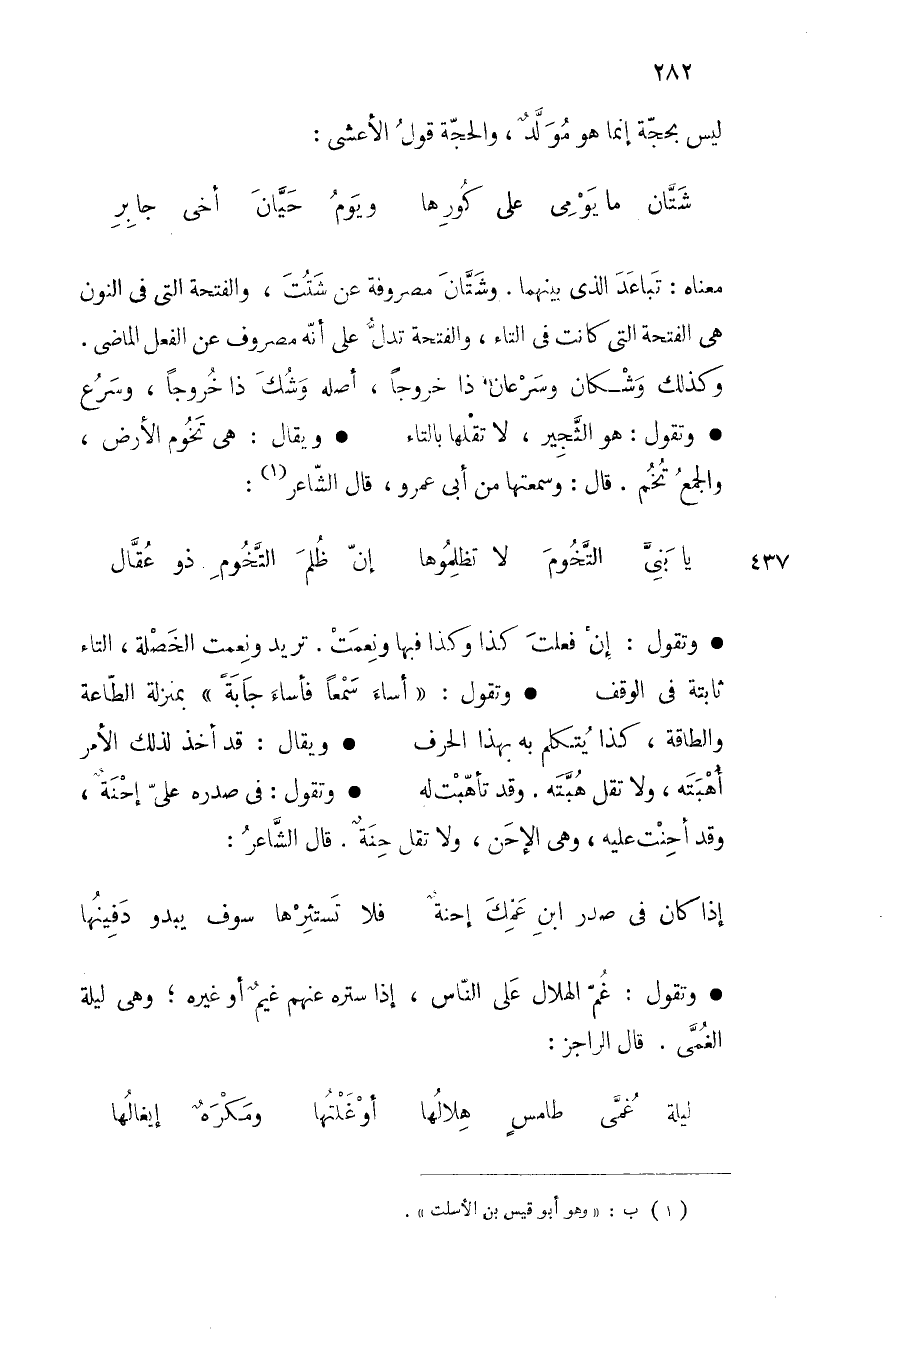 ٢٨٢
ليس بحجّة إنما هو مُوَلَّدٌ ، والحجّة قولُ الأعشى :
شَتَّان ما يَوْمِى على كُورِها ويَومُ حَيَّانَ أخى جابِرِ
معناه : تَباعَدَ الذى بينهما . وشَتَّانَ مصروفة عن شَتُتَ ، والفتحة التى فى النون
هى الفتحة التى كانت فى التاء ، والفتحة تدلُّ على أنّه مصروف عن الفعل الماضى .
وكذلك وَشْكان وسَرْعان ذا خروجاً ، أصله وَشُكَ ذا خُروجاً ، وسَرُع
● وتقول : هو الثَّجِير ، لا تقلها بالتاء ● ويقال : هى تَخُوم الأرض ،
والجمعُ تُخُم . قال : وسمعتها من أبى عمرو ، قال الشّاعر(١) :
يا بَنِيَّ التَّخُومَ لا تظلِمُوها إنّ ظُلمَ التَّخُومِ ذو عُقَّال ٤٣٧
● وتقول : إن فعلتَ كذا وكذا فبها ونِعمَتْ . تريد ونِعمت الخَصْلة ، التاء
ثابتة فى الوقف ● وتقول : « أساءَ سَمْعاً فأساءَ جَابَةً » بمنزلة الطّاعة
والطاقة ، كذا يُتكلم به بهذا الحرف ● ويقال : قد أخذ لذلك الأمر
أُهْبَتَه ، ولا تقل هُبَّتَه . وقد تأهّبْت له ● وتقول : فى صدره علىّ إحْنَةٌ ،
وقد أحِنْت عليه ، وهى الإحَن ، ولا تقل حِنَةٌ . قال الشَّاعرُ :
إذا كان فى صدر ابنِ عَمِّكَ إحنةٌ فلا تَستثِرْها سوف يبدو دَفِينُها
● وتقول : غُمّ الهلال عَلَى النّاس ، إذا ستره عنهم غيمٌ أو غيره ؛ وهى ليلة
الغُمَّى . قال الراجز :
ليلة غُمَّى طامسٍ هِلالُها أوْغَلْتُها ومَكْرَهٌ إيغالُها
( ١ ) ب : « وهو أبو قيس بن الأسلت » .